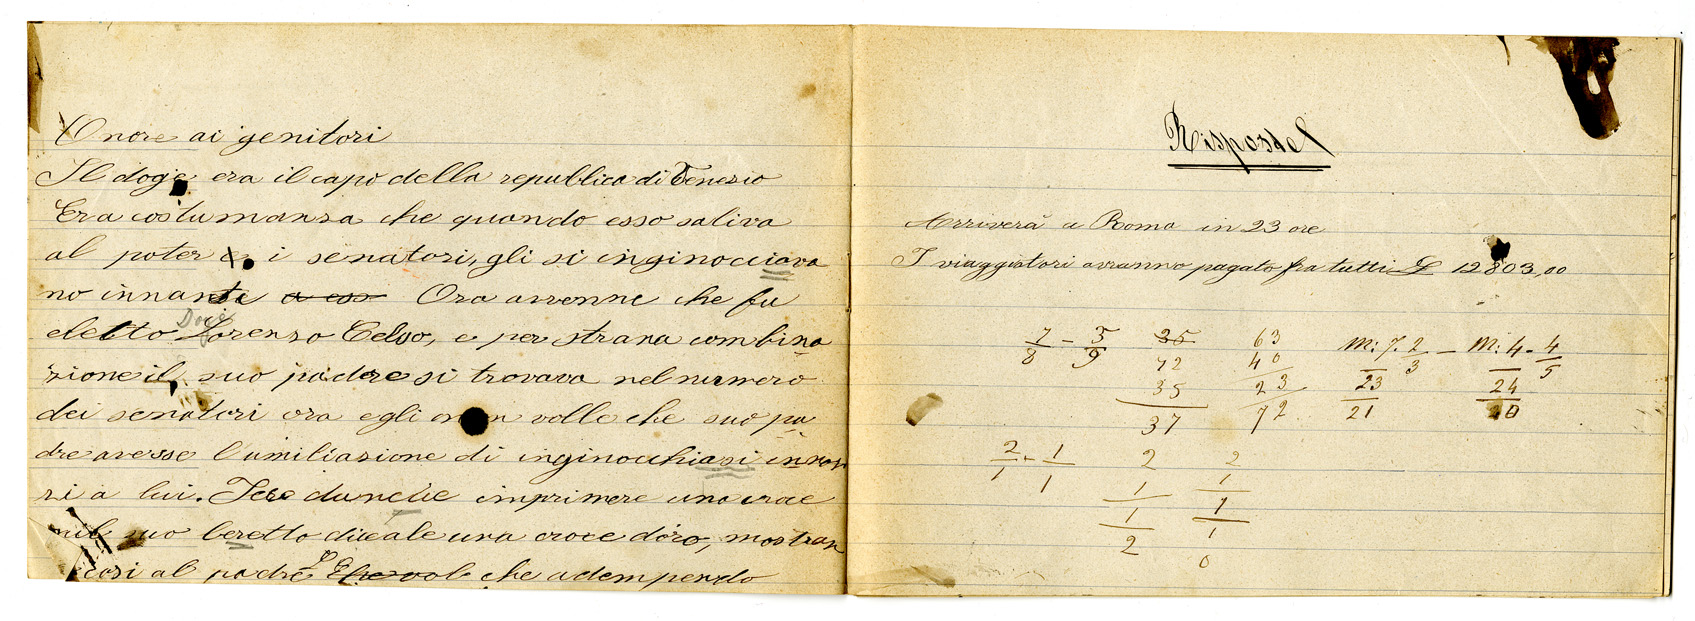 Onore ai genitori
Il doge era il capo della republica di Venezio
Era costumansa che quando esso saliva
al poter e, i senatori, gli si inginocciava
no innante a esso Ora avvenne che fu
Doge
eletto Lorenzo Celso, e per strana combina
zione il suo padre si trovava nel numero
dei senatori ora egli non volle che suo pa
dre avesse l'umiliazione di inginocchiasi innan
zi a lui. Fece dunche imprimere una croce
nil suo beretto ducale una croce d'oro, mostran
così al padre che adempendo
Risposte
Arriverà a Roma in 23 ore
I viaggiatori avranno pagato fra tutti £ 12803,00
7/8 - 5/9 35 63 M: 7. 2/3 - M: 4. 4/5
72 40
35 23 23 24
37 72 21 20
2/1 - 1/1 2 2
1 1
1 1
2 1
0